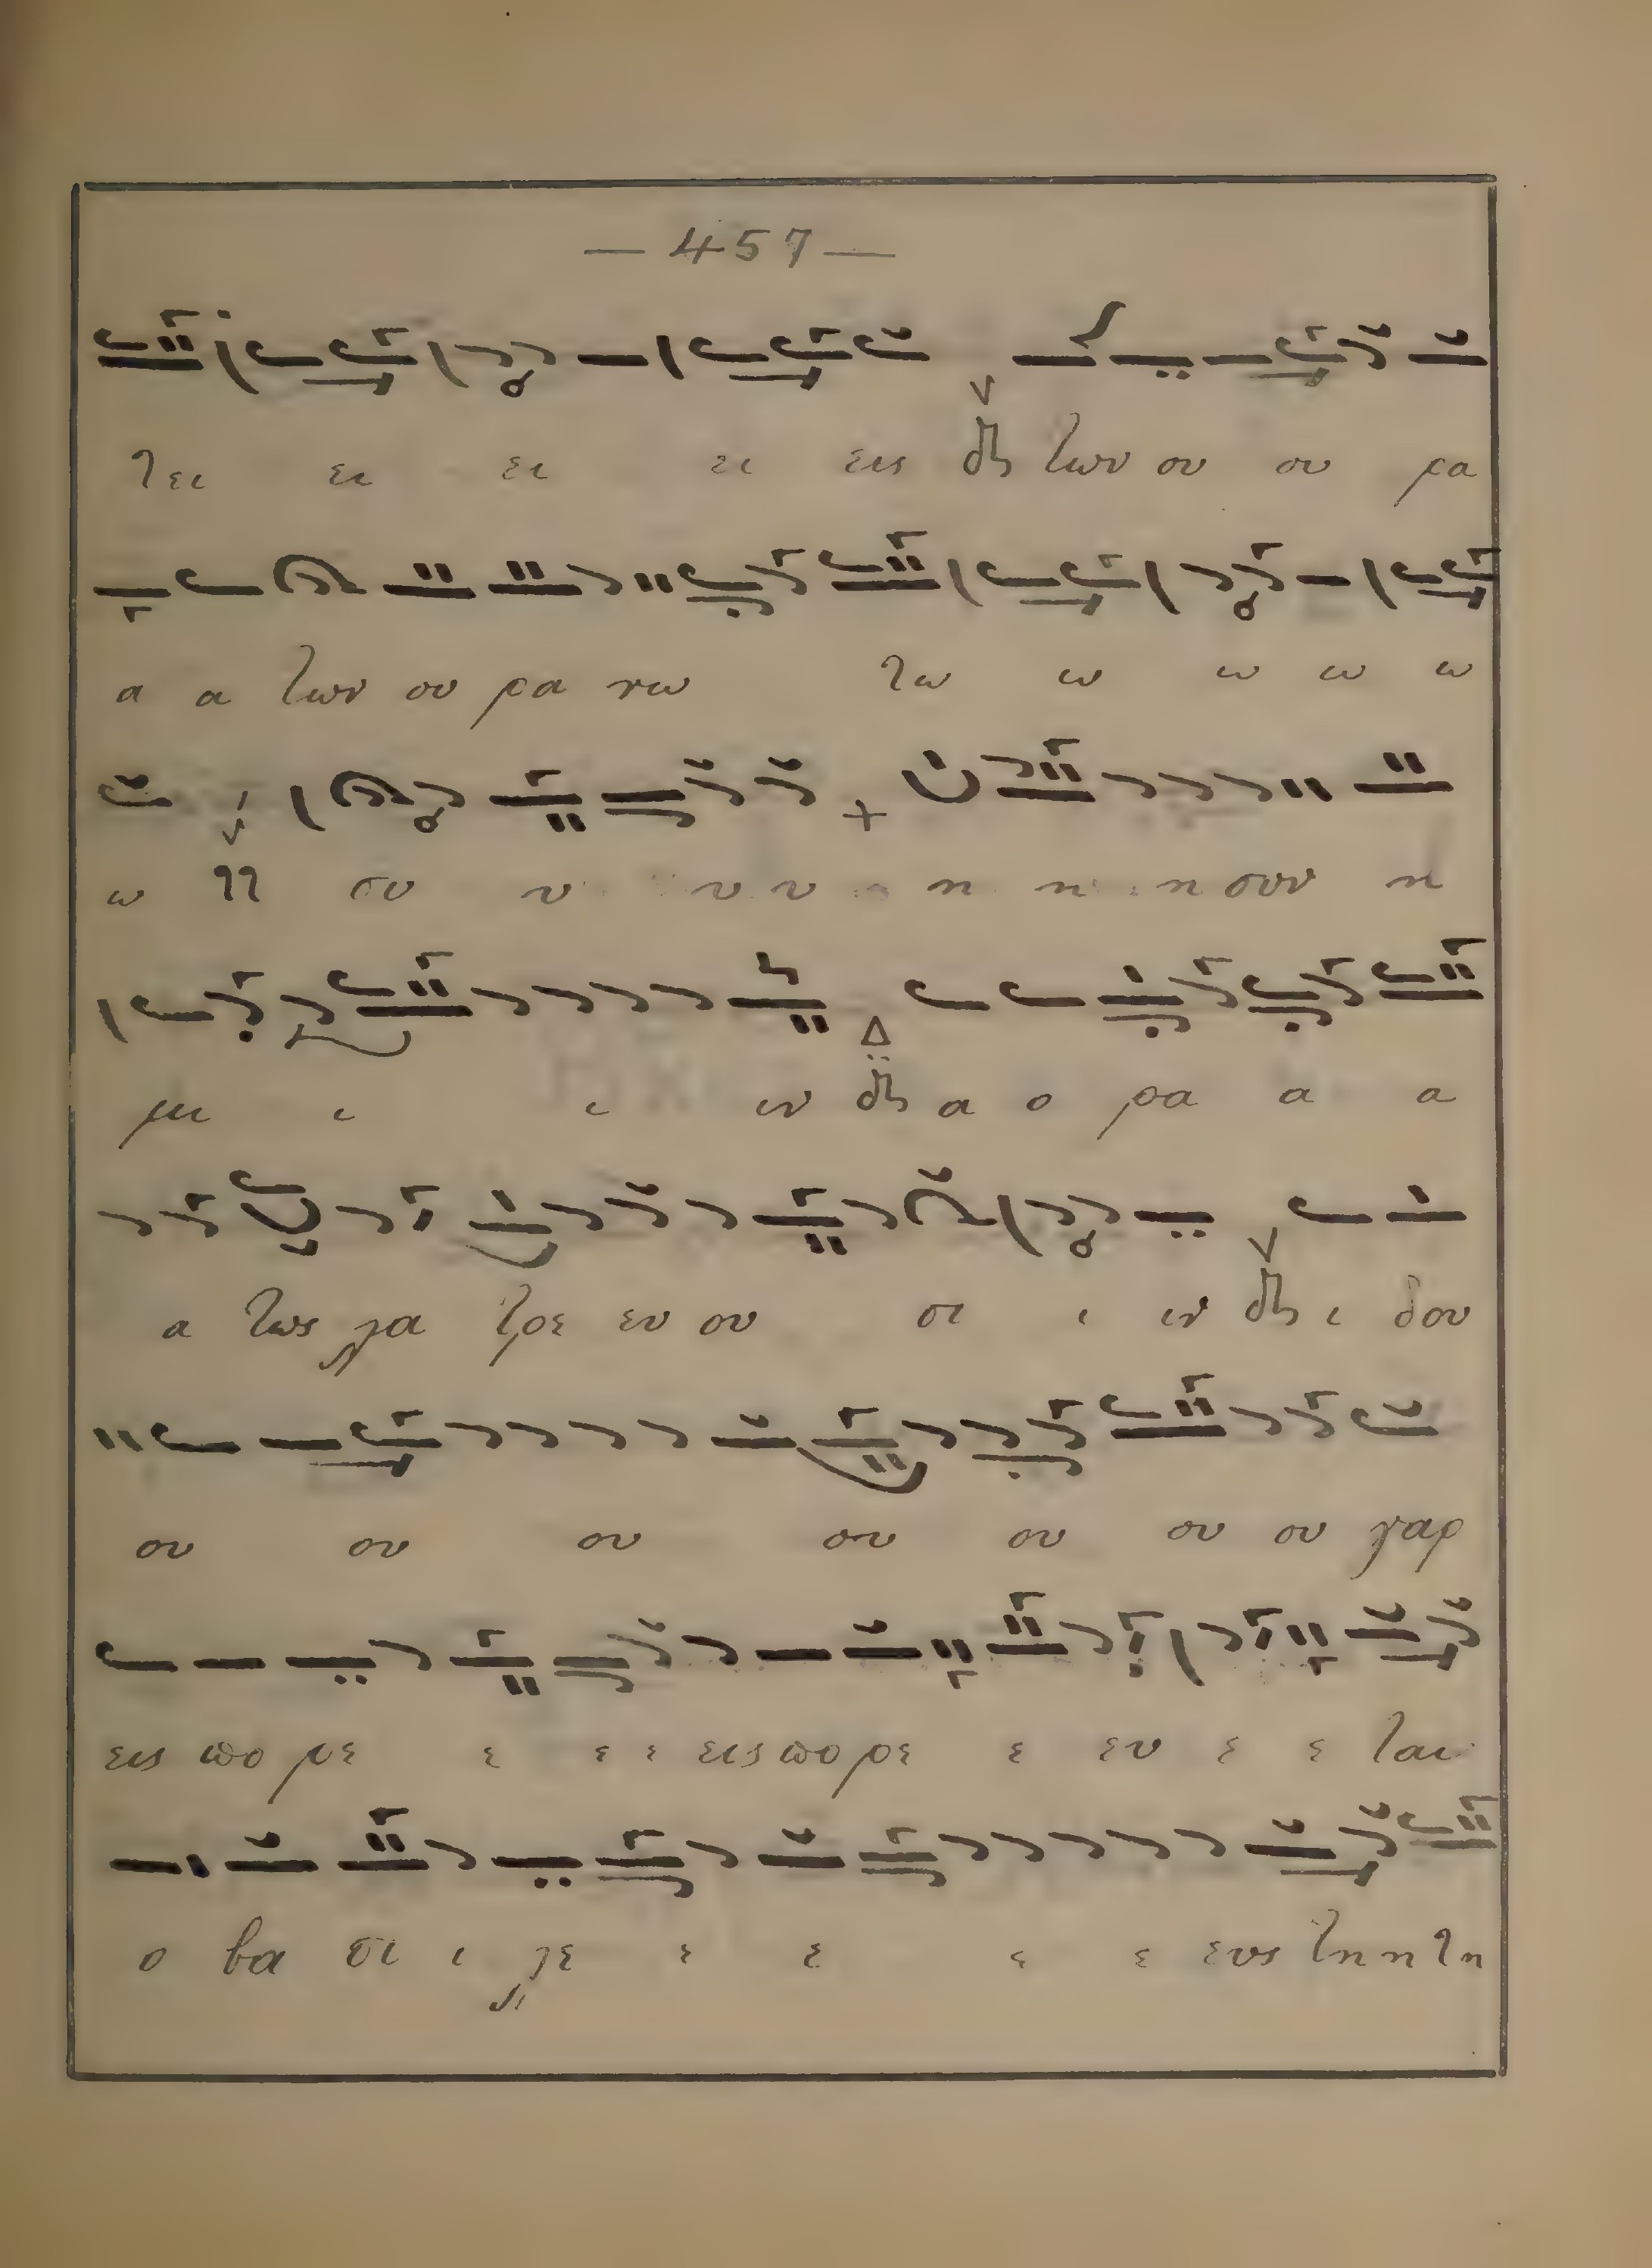 — 457 —
τει ει ει ει εις των ου ου ρα
α α των ου ρα νω τω ω ω ω ω
ω συ υ υ υ η η η συν η
μι ι ι ιν α ο ρα α α
α τως λα τρε ευ ου σι ι ιν ι δου
ου ου ου ου ου ου ου γαρ
εις πο ρε ε ε ε εις πο ρε ε ευ ε ε ται
ο βα σι ι λε ε ε ε ε ευς τη η τη